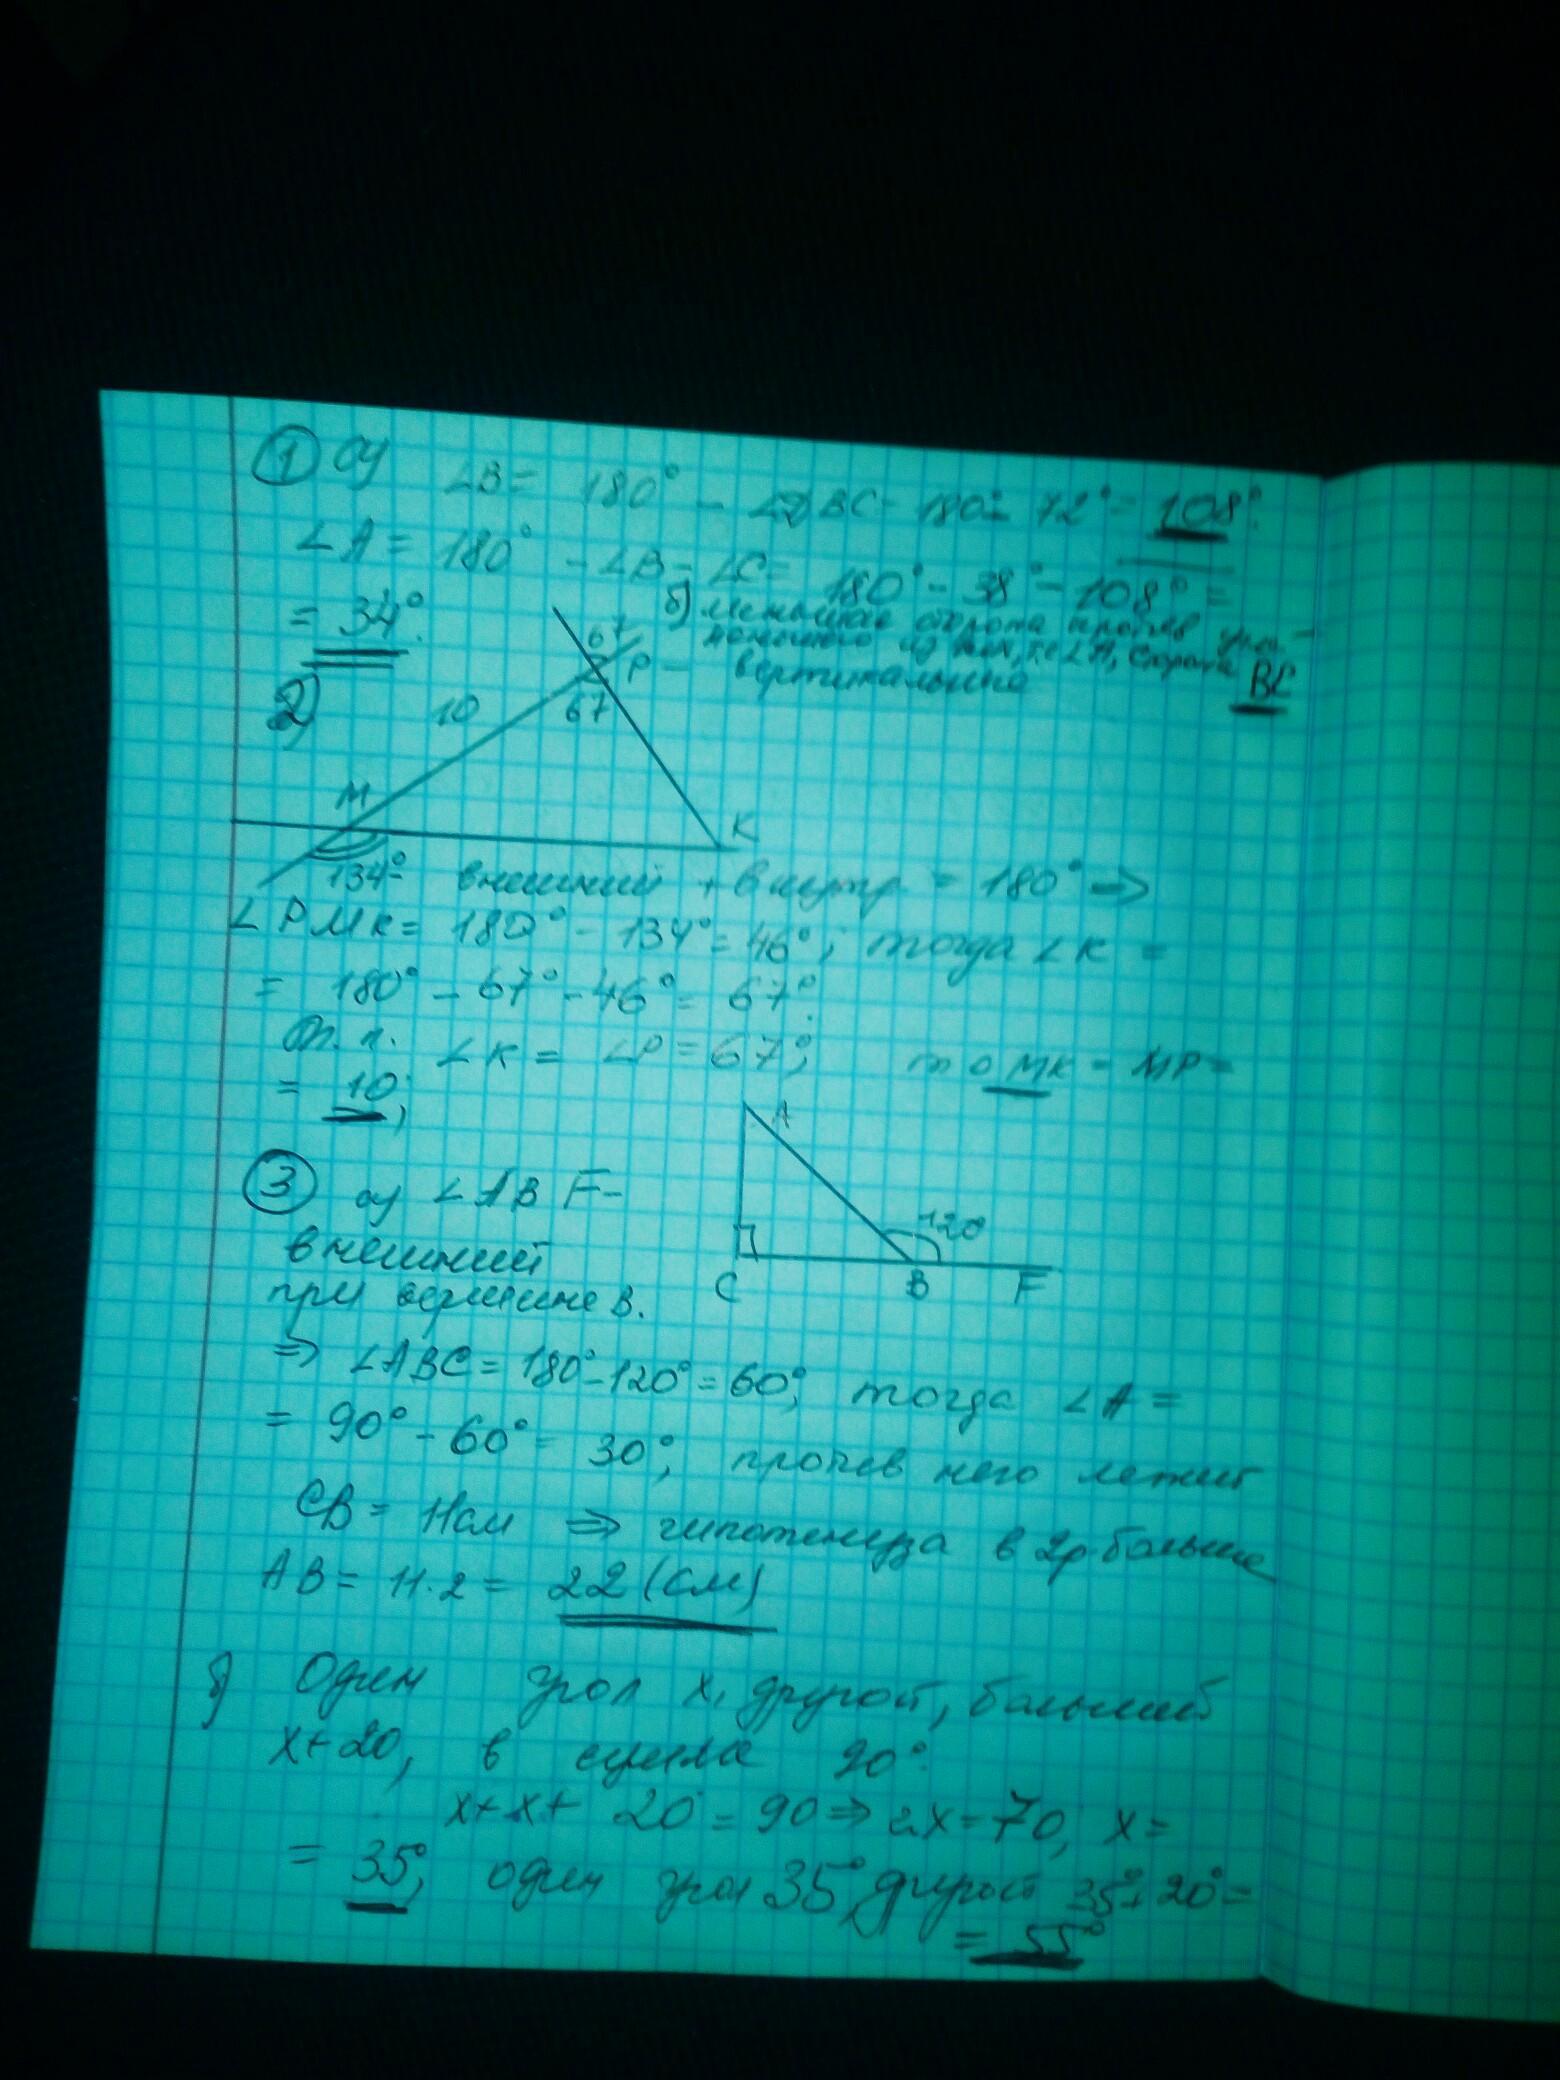 1 а) ∠B = 180° - ∠DBC = 180° - 72° = 108°.
∠A = 180° - ∠B - ∠C = 180° - 38° - 108° =
= 34°.
б) меньшая сторона против
из них, т.е ∠A, сторона BC
2)
67
P - вертикальные
10
67
M
K
134° внешний + внутр = 180° ⇒
∠PMK = 180° - 134° = 46°; тогда ∠K =
= 180° - 67° - 46° = 67°.
Т.к. ∠K = ∠P = 67°, то MK = MP =
= 10;
A
3 а) ∠ABF -
120
внешний
C B F
при вершине B.
⇒ ∠ABC = 180° - 120° = 60°, тогда ∠A =
= 90° - 60° = 30°, против него лежит
CB = 11см ⇒ гипотенуза в 2р. больше
AB = 11·2 = 22 (см)
б) Один угол x, другой, больший
x+20, в сумме 90°.
x+x+ 20 = 90 ⇒ 2x = 70, x =
= 35°, один угол 35°, другой 35°+20° =
= 55°